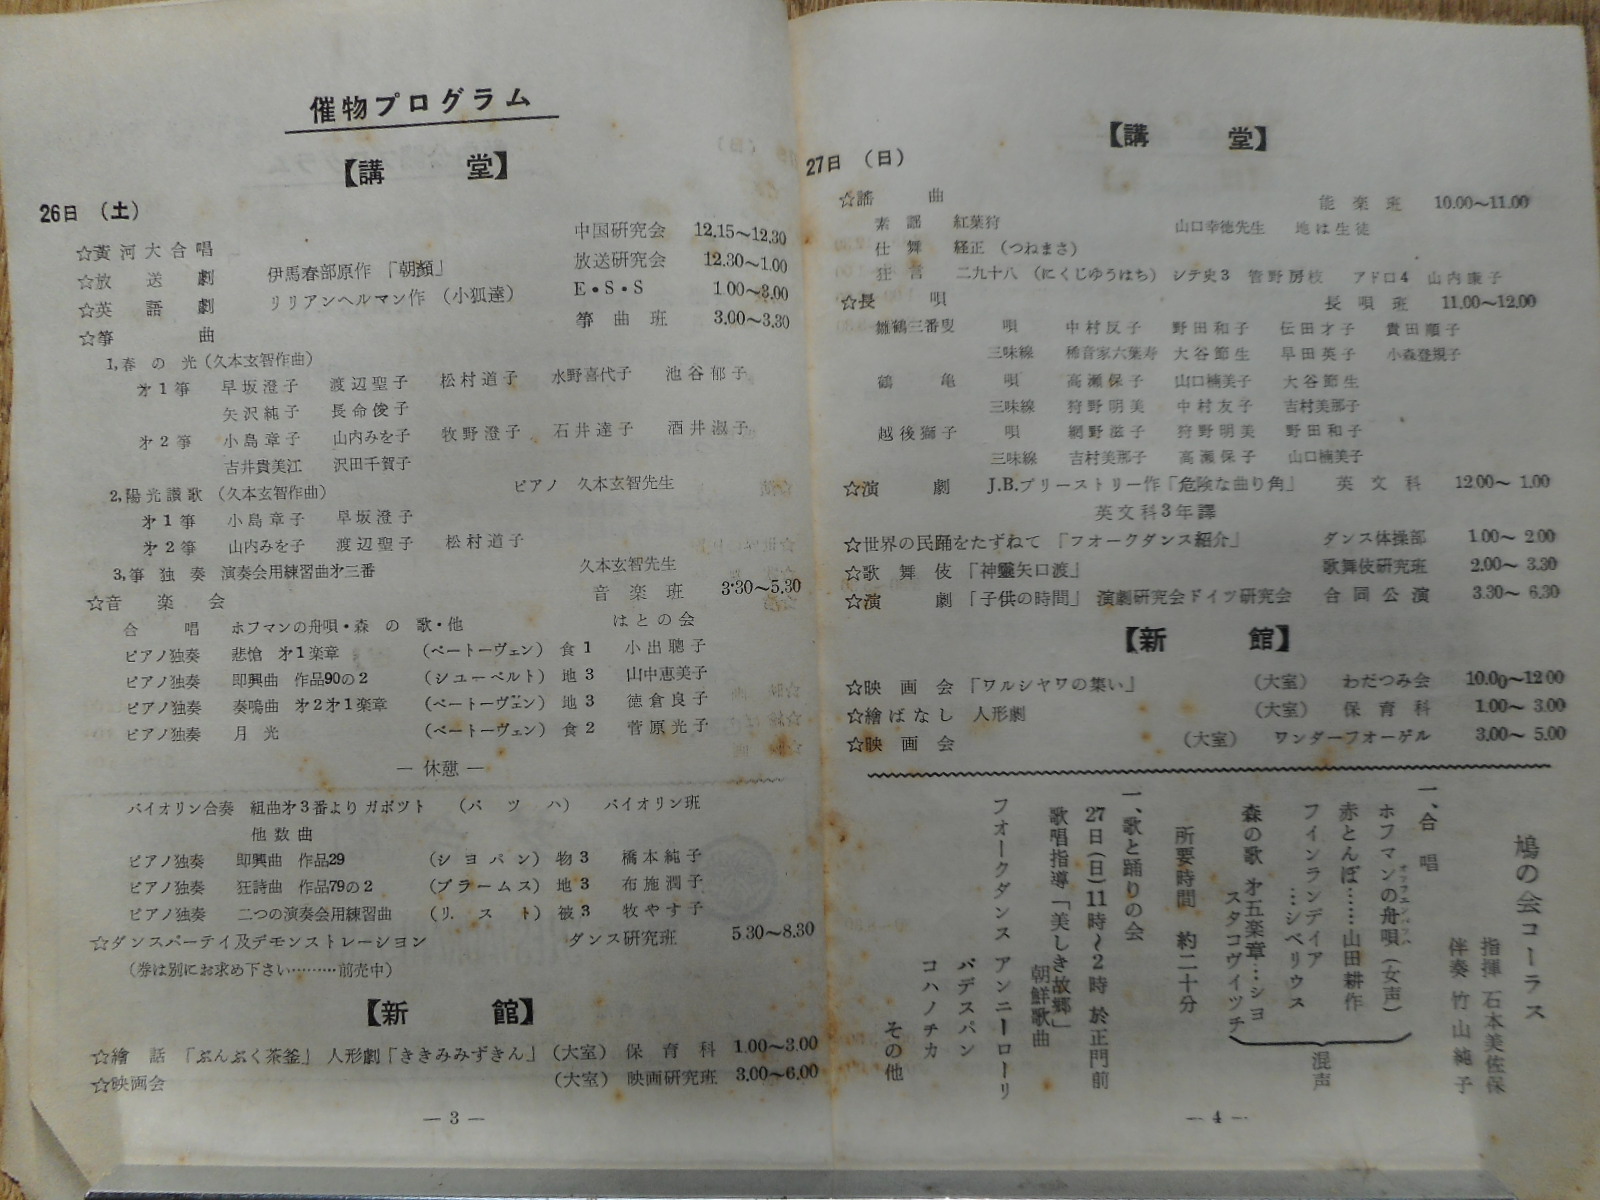 催物プログラム
【講　堂】
26日（土）
☆黄河大合唱　中国研究会　12.15〜12.30
☆放送劇　伊馬春部原作「朝顔」　放送研究会　12.30〜1.00
☆英語劇　リリアンヘルマン作（小狐達）　E・S・S　1.00〜3.00
☆箏曲　箏曲班　3.00〜3.30
1,春の光（久本玄智作曲）
才1箏　早坂澄子　渡辺聖子　松村道子　水野喜代子　池谷郁子
矢沢純子　長命俊子
才2箏　小島章子　山内みを子　牧野澄子　石井達子　酒井淑子
吉井貴美江　沢田千賀子
2,陽光讃歌（久本玄智作曲）　ピアノ　久本玄智先生
才1箏　小島章子　早坂澄子
才2箏　山内みを子　渡辺聖子　松村道子
3,箏独奏　演奏会用練習曲才三番　久本玄智先生
☆音楽会　音楽班　3.30〜5.30
合唱　ホフマンの舟唄・森の歌・他　はとの会
ピアノ独奏　悲愴　才1楽章　（ベートーヴェン）　食1　小出聰子
ピアノ独奏　即興曲　作品90の2　（シユーベルト）　地3　山中恵美子
ピアノ独奏　奏鳴曲　才2才1楽章　（ベートーヴェン）　地3　徳倉良子
ピアノ独奏　月光　（ベートーヴェン）　食2　菅原光子
― 休憩 ―
バイオリン合奏　組曲才3番よりガボツト　（バツハ）　バイオリン班
他数曲
ピアノ独奏　即興曲　作品29　（シヨパン）　物3　橋本純子
ピアノ独奏　狂詩曲　作品79の2　（ブラームス）　地3　布施潤子
ピアノ独奏　二つの演奏会用練習曲　（リスト）　被3　牧やす子
☆ダンスパーテイ及デモンストレーション　ダンス研究班　5.30〜8.30
（券は別にお求め下さい………前売中）
【新　館】
☆繪話　「ぶんぶく茶釜」　人形劇「ききみみずきん」　（大室）　保育科　1.00〜3.00
☆映画会　（大室）　映画研究班　3.00〜6.00
― 3 ―
【講　堂】
27日（日）
☆謡曲　能楽班　10.00〜11.00
素謡　紅葉狩　山口幸徳先生　地は生徒
仕舞　経正（つねまさ）
狂言　二九十八（にくじゆうはち）　シテ史3　管野房枝　アドロ4　山内康子
☆長唄　長唄班　11.00〜12.00
雛鶴三番叟　唄　中村反子　野田和子　伝田才子　貴田順子
三味線　稀音家六葉寿　大谷節生　早田英子　小森登親子
鶴亀　唄　高瀬保子　山口楠美子　大谷節生
三味線　狩野明美　中村友子　吉村美那子
越後獅子　唄　網野滋子　狩野明美　野田和子
三味線　吉村美那子　高瀬保子　山口楠美子
☆演劇　J.B.プリーストリー作「危険な曲り角」　英文科　12.00〜1.00
英文科3年譯
☆世界の民踊をたずねて「フオークダンス紹介」　ダンス体操部　1.00〜2.00
☆歌舞伎「神靈矢口渡」　歌舞伎研究班　2.00〜3.30
☆演劇「子供の時間」　演劇研究会ドイツ研究会　合同公演　3.30〜6.30
【新　館】
☆映画会「ワルシヤワの集い」　（大室）　わだつみ会　10.00〜12.00
☆繪ばなし　人形劇　（大室）　保育科　1.00〜3.00
☆映画会　（大室）　ワンダーフオーゲル　3.00〜5.00
鳩の会コーラス
指揮　石本美佐保
伴奏　竹山純子
一、合唱
ホフマンの舟唄（女声）
赤とんぼ……山田耕作
フインランデイア
…シベリウス
森の歌　才五楽章…シヨ
スタコヴイツチ
混声
所要時間　約二十分
一、歌と踊りの会
27日（日）11時〜2時　於正門前
歌唱指導「美しき故郷」
朝鮮歌曲
フオークダンス　アンニーローリ
バデスパン
コハノチカ
その他
― 4 ―